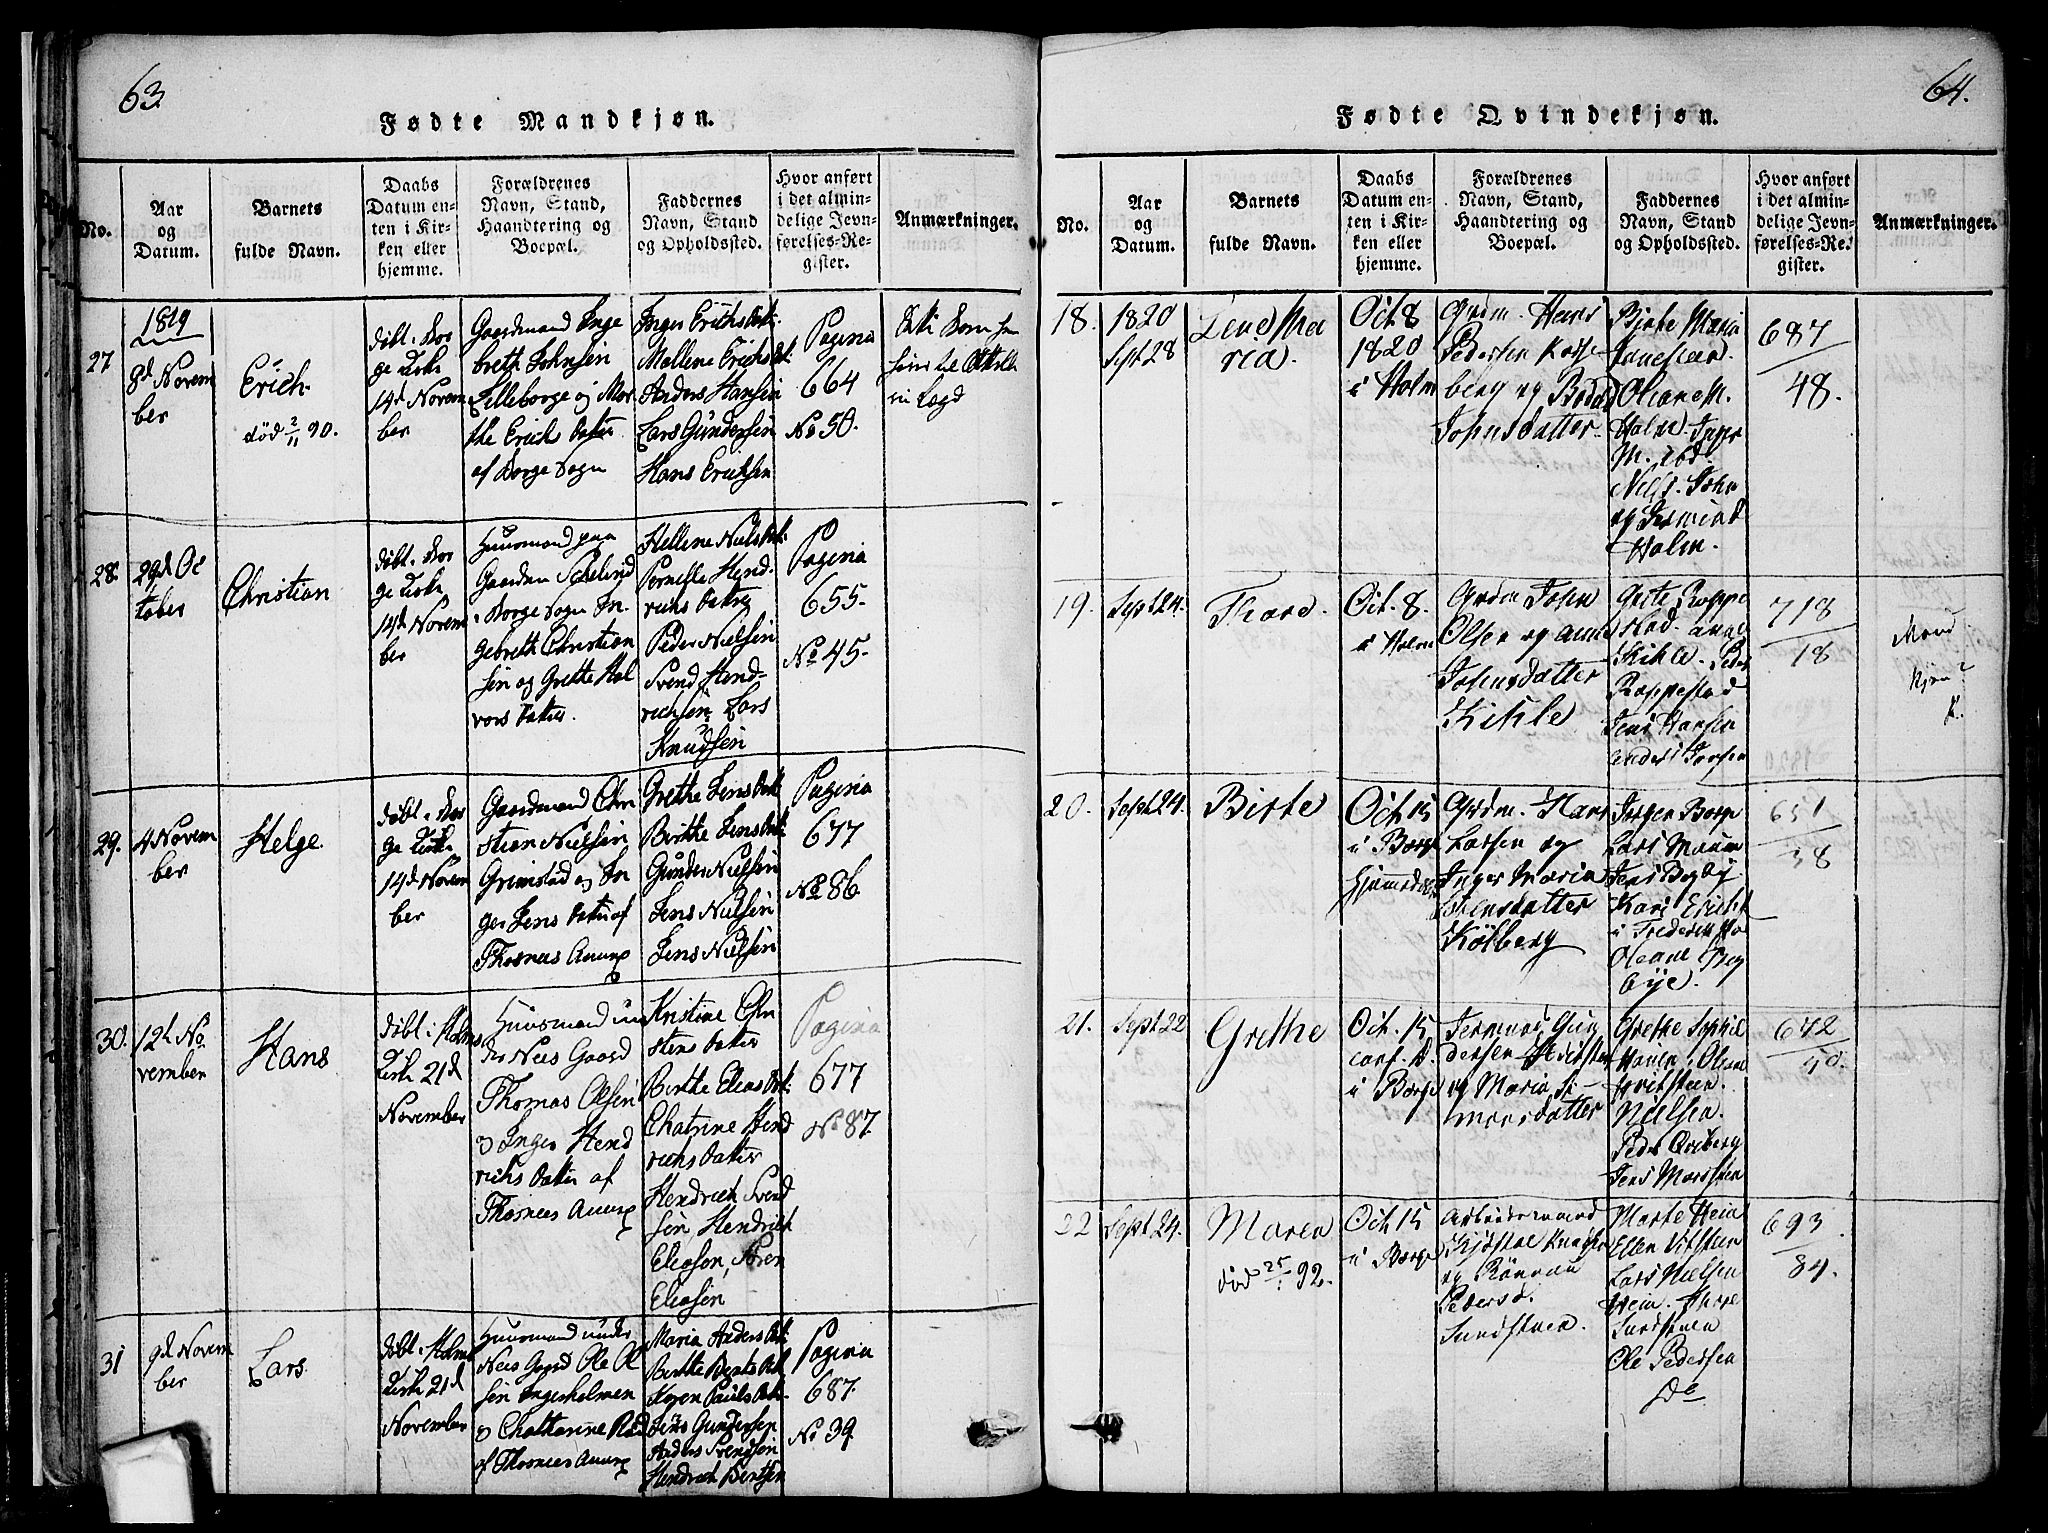 63.
Fødte Mandkjøn.
No.
Aar
og
Datum.
Barnets
fulde Navn.
Daabs
Datum en-
ten i Kir-
ken eller
hjemme.
Forældrenes
Navn, Stand,
Haandtering og
Boepæl.
Faddernes
Navn, Stand
og Opholdssted.
Hvor anført
i det almin-
delige Jevn-
førelses-Re-
gister.
Anmærkninger.
27
1819
8d Novem
ber
Erich
død 2/11 90.
døbt i Bor
ge Kirke
14d Novem
ber
Gaardmand Inge
breth Johnsen
Lilleborge og Mar
the Erichs Datter
af Borge Sogn
Inger Erichs Dat:
Mallene Erichs Dat:
Anders Hansen
Lars Gundersen
Hans Erichsen
Pagina
664
No 50.
28.
29d Oc
tober
Christian
døbt i Bor
ge Kirke
14d Novem
ber
Huusmand paa
Gaarden
i Borge Sogn In
gebreth Christian
sen og Grethe Hal
vors Datter.
Hellene Niels Dat:
Pernelle Hend-
richs Datter
Peder Nielsen
Svend Hend-
richsen Lars
Knudsen
Pagina
655.
No 45.
29.
4 Novem
ber
Helge.
døbt i Bor
ge Kirke
14d Novem
ber
Gaardmand Chri
stian Nielsen
Grimstad og In
ger Jens Datter af
Thosnees Annex
Grethe Jens Dat:
Birthe Jens Dat:
Gunder Nielsen
Jens Nielsen
Jens Nielsen
Pagina
677
No 86
30.
12te No
vember
Hans
døbt i Holms
Kirke 21d
November
Huusmand un
der Nees Gaard
Thomas Olsen
og Inger Hend
richs Datter af
Thosnees Annex
Kristine Chri
stens Datter
Birthe Elias Dat:
Chatrine Hend
richs Datter
Hendrich Svend
sen, Hendrich
Eliasen, Søren
Eliasen
Pagina
677
No 87.
31
9d Novem
ber
Lars.
døbt i Holms
Kirke 21d
November
Huusmand under
Nees Gaard Ole Ol
sen Ingerholmen
og Chatharine
af Thosnees Annex
Maria Anders Dat:
Birthe Bents Dat
Karen Pauls Dat.
Jens Gundersen
Anders Svendsen
Hendrich Bentsen
Pagina
687.
No 39
64.
Fødte Qvindekjøn.
No.
Aar
og
Datum.
Barnets
fulde Navn.
Daabs
Datum en-
ten i Kir-
ken eller
hjemme.
Forældrenes
Navn, Stand,
Haandtering og
Boepæl.
Faddernes
Navn, Stand
og Opholdssted.
Hvor anført
i det almin-
delige Jevn-
førelses-Re-
gister.
Anmærkninger.
18.
1820
Sept 28
Lene Ma
ria.
Oct. 8
1820
i Holm
Grdm. Hans
Pedersen Kasse
berg og
Johnsdatter
Birte Maria
Oleane M.
Holm. Inger
M. ibd.
Niels. John
Holm.
687
48.
19.
Sept 24.
Thore.
Oct. 8.
i Holm
Grdm John
Olsen og Anne
Johnsdatter
Kihle
Grete Roppe
stad. Aage
Kihle. Peder
Roppestad
Jens Hansen
Anders
718
18
Mand
kjøn?
K.
20.
Sept 24.
Birte
Oct 15
i Borge
Hjemmedøbt
Grdm. Hans
Larsen og
Inger Maria
Kølberg
Jørgen Borge
Lars
Jens Begby
Kari
i Frederiks
Oleane Beg
bye.
651
38
21.
Sept 22
Grethe
Oct. 15
conf. d.
i Borge
Jermund Gun
dersen Hvitsten
og Maria Si-
monsdatter
Grethe Sophie
Hvitsteen.
Nielsen.
Peder
Jens
642
40.
22
Sept 24.
Maren
død 25/1 92.
Oct 15
i Borge
Arbeidsmand
Kjøstol Knudsen
og Rønnau
Pedersd.
Sundsteen.
Marte Heia
Ellen Vitsteen
Lars Nielsen
Heia.
Sundsteen
Ole Pedersen
Do
693
84.